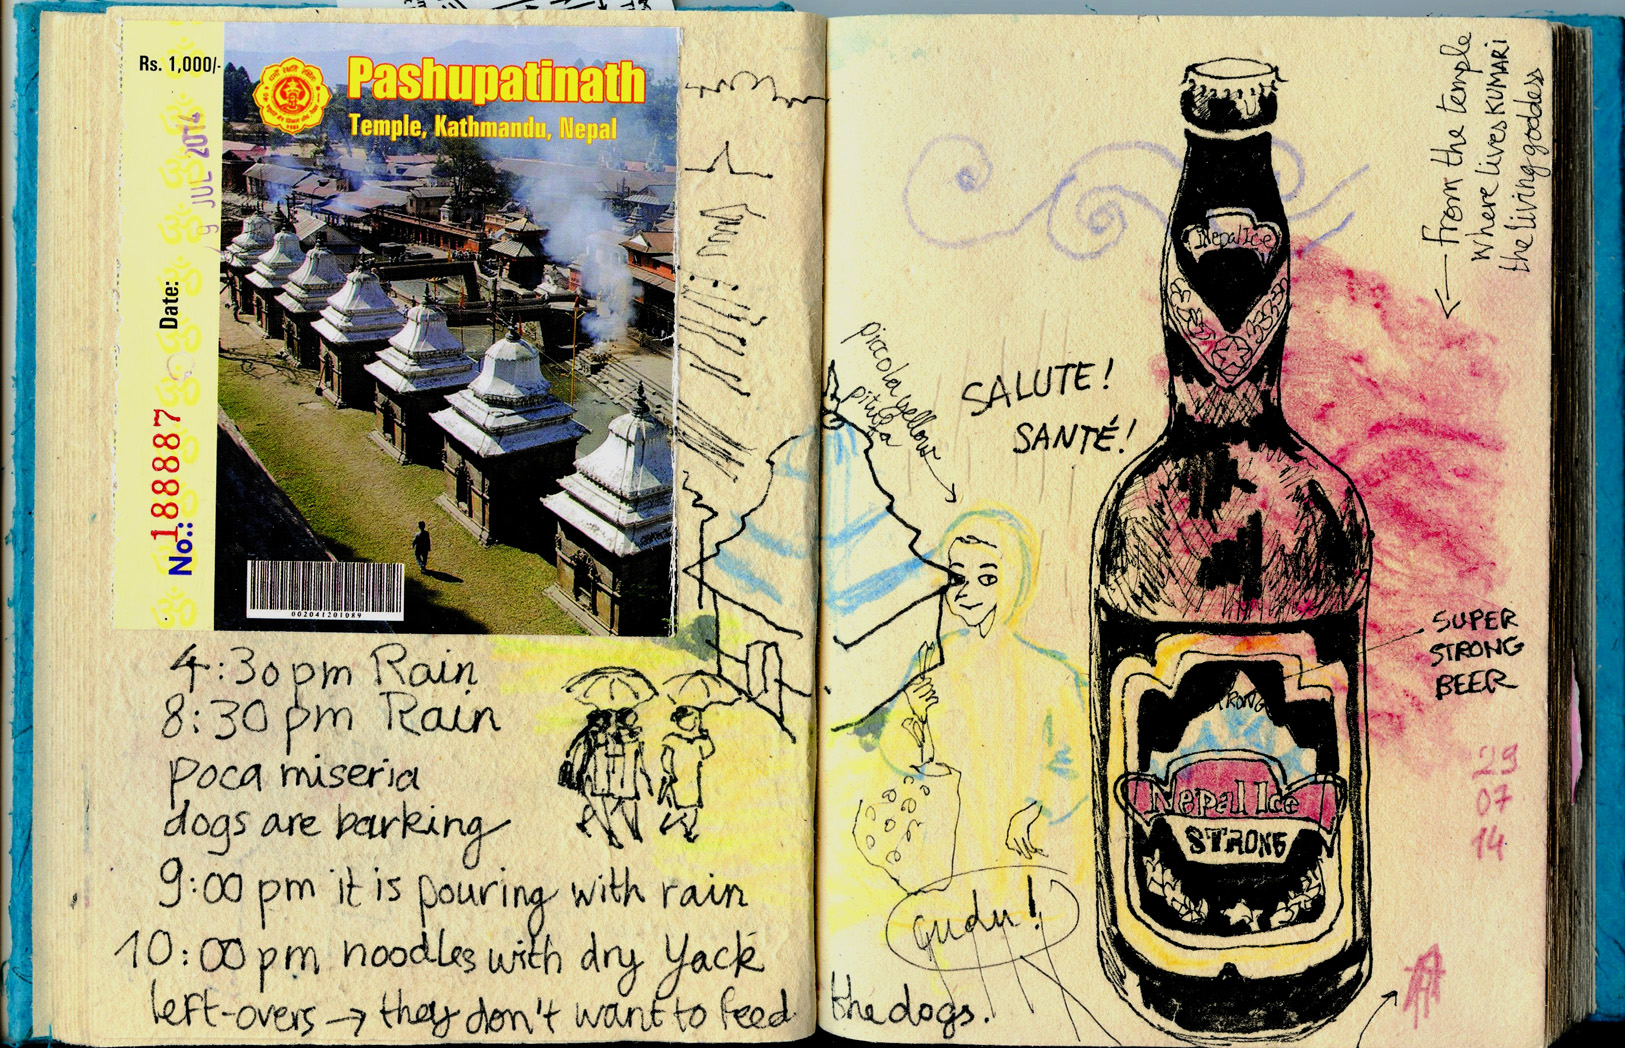 Rs. 1,000/-
Pashupatinath
Temple, Kathmandu, Nepal
Date:
9 JUL 2014
No.: 188887
002041201089
4:30 pm Rain
8:30 pm Rain
poca miseria
dogs are barking
9:00 pm it is pouring with rain
10:00 pm noodles with dry Yack
left-overs → they don't want to feed the dogs.
piccola yellow
SALUTE!
SANTÉ!
gudu!
From the temple
where lives KUMARI
the living goddess
Nepal Ice
SUPER
STRONG
BEER
STRONG
Nepal Ice
STRONG
29
07
14